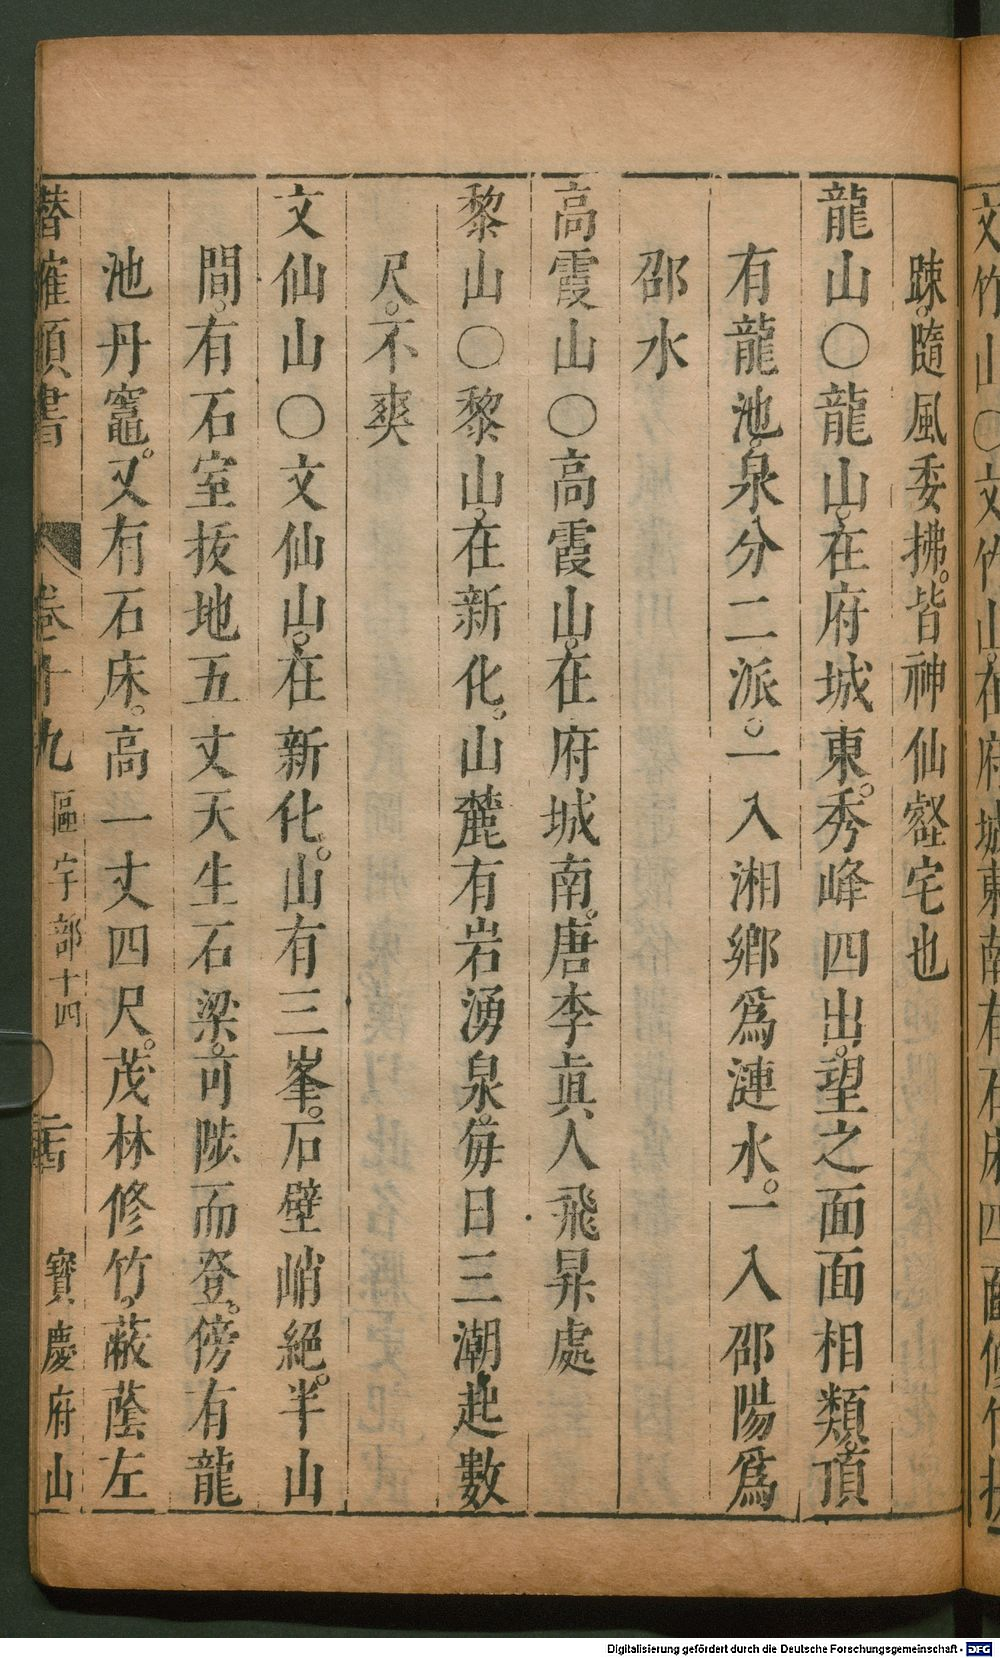 文竹山○文竹山。在府城東南有石床四面修竹
疎。隨風委拂。皆神仙窟宅也
龍山○龍山。在府城東。秀峰四出。望之面面相類。頂
有龍池。泉分二派。一入湘鄉爲漣水。一入邵陽爲
邵水
高霞山○高霞山。在府城南。唐李眞人飛昇處
黎山○黎山。在新化。山麓有岩湧泉。每日三潮。起數
尺。不爽
文仙山○文仙山。在新化。山有三峯。石壁峭絕。半山
間。有石室抜地五丈天生石梁。可陟而登。傍有龍
池丹竈。又有石床。高一丈四尺。茂林修竹。蔽蔭左
潛確類書 卷十九 區宇部十四 二十 寶慶府山
Digitalisierung gefördert durch die Deutsche Forschungsgemeinschaft - DFG